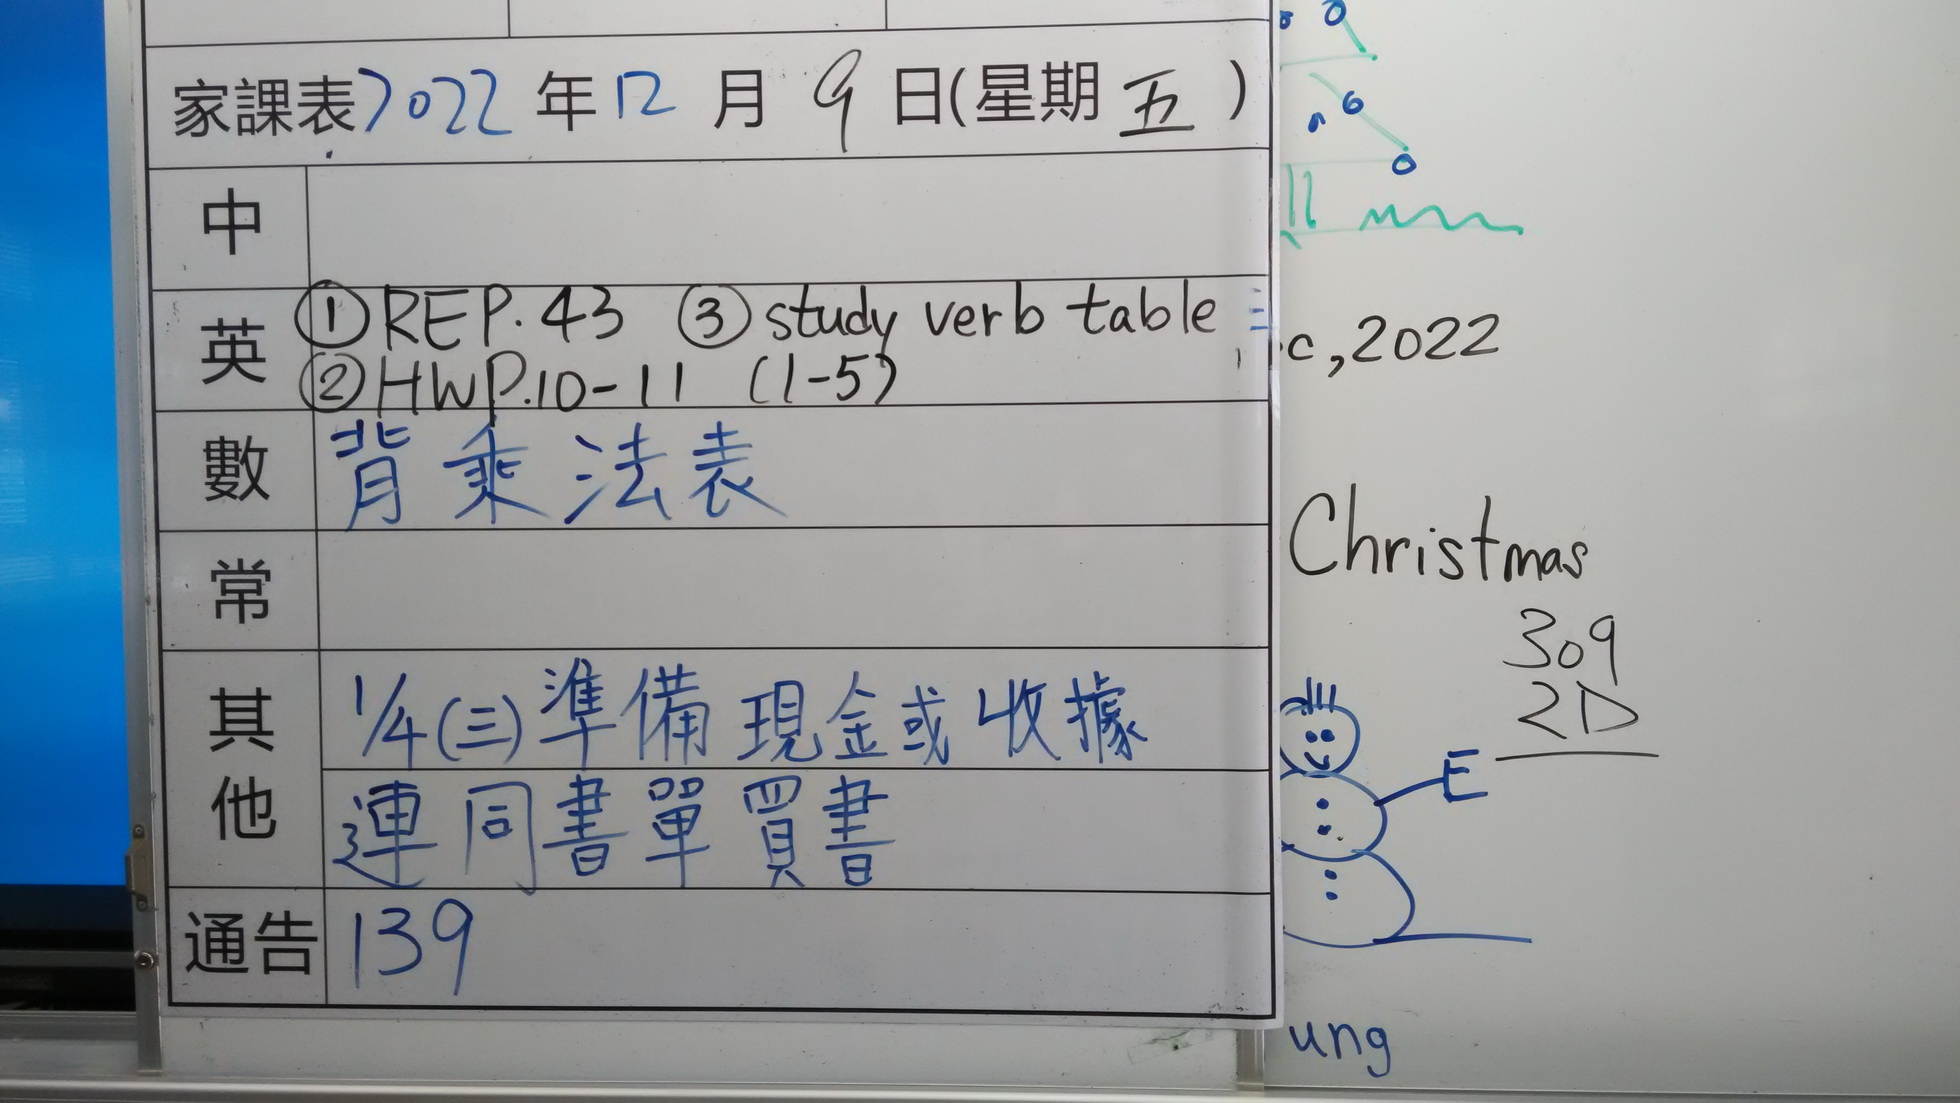 家課表 2022 年 12 月 9 日(星期 五 )
中
英 ① REP.43 ③ study verb table
② HWP.10-11 (1-5)
數 背乘法表
常
其他 1/4(三)準備現金或收據
連同書單買書
通告 139
c,2022
Christmas
309
2D
E
ung